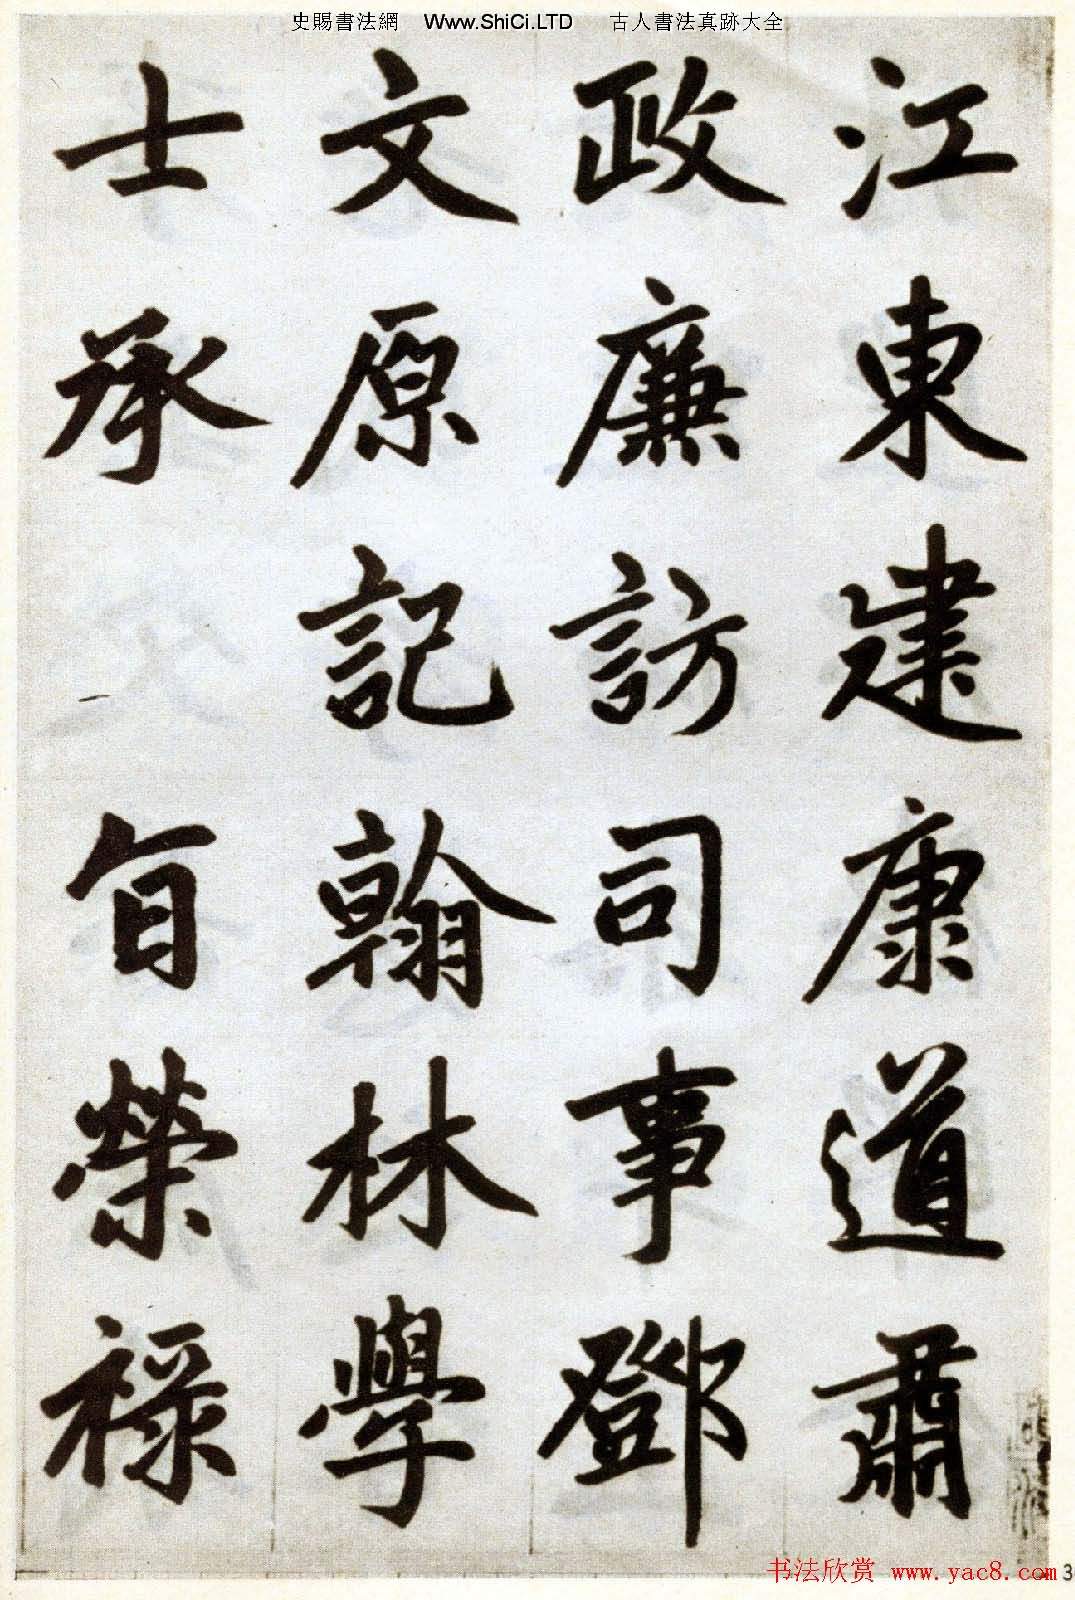 史賜書法網 Www.ShiCi.LTD 古人書法真跡大全
江東建康道肅
政廉訪司事鄧
文原記翰林學
士承旨榮祿
书法欣赏 www.yac8.com
3